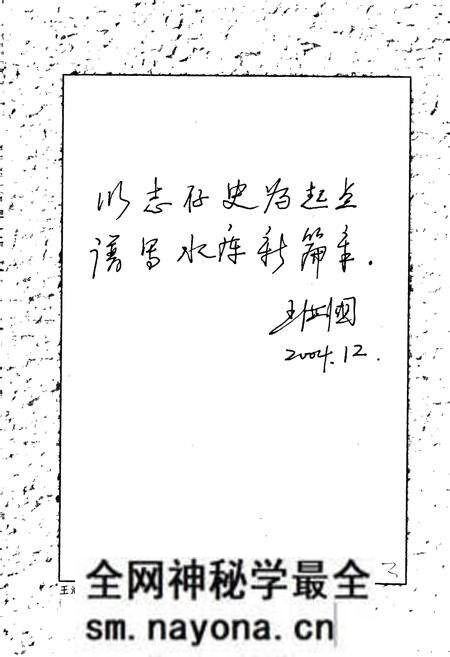 以志存史为起点
谱写水库新篇章.
2004.12.
3
王
全网神秘学最全
sm.nayona.cn